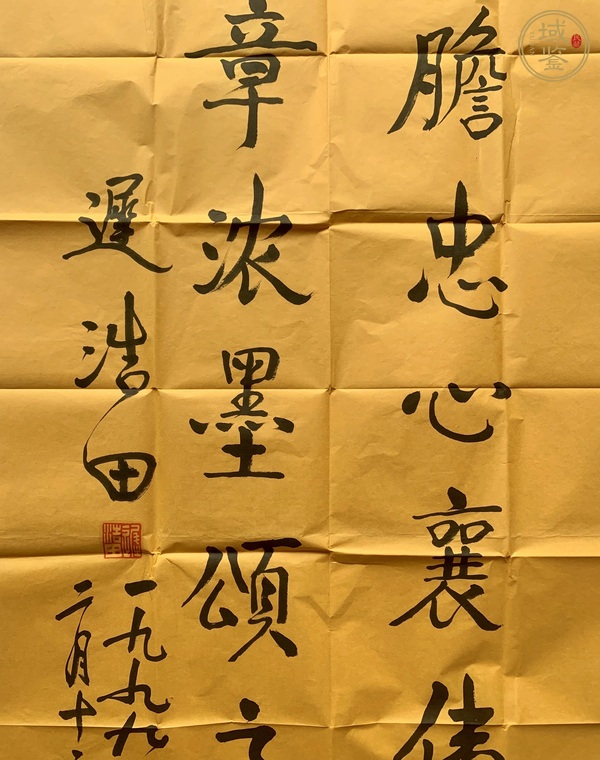 膽忠心襄偉
章浓墨頌
遲浩田
一九九九
二月十
域鉴